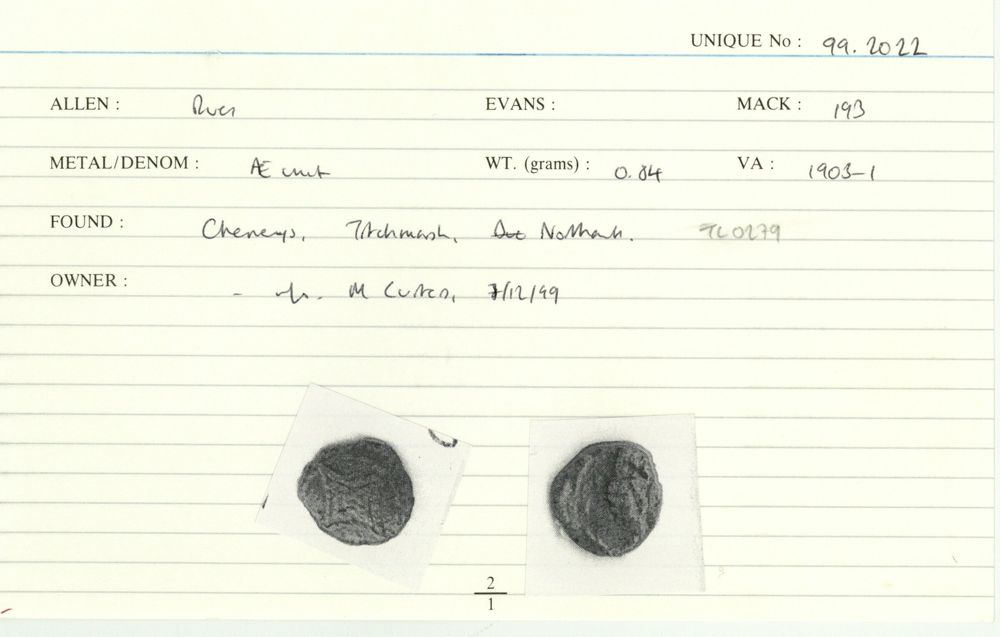 UNIQUE No : 99.2022
ALLEN : EVANS : MACK : 193
METAL/DENOM : Æ unit WT. (grams) : 0.84 VA : 1903-1
FOUND : Titchmarsh, TL0279
OWNER : - M Curteis, 7/12/99
2
1